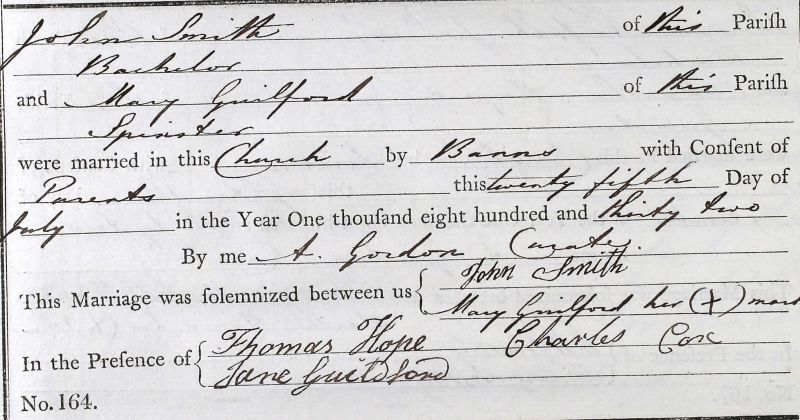 John Smith of this Pariſh
Bachelor
and Mary Guilford of this Pariſh
Spinster
were married in this Church by Banns with Conſent of
Parents this twenty fifth Day of
July in the Year One thouſand eight hundred and thirty two
By me A. Gordon Curate.
This Marriage was ſolemnized between us { John Smith
Mary Guilford her (X) mark
In the Preſence of { Thomas Hope Charles Cox
Jane Guildford
No. 164.